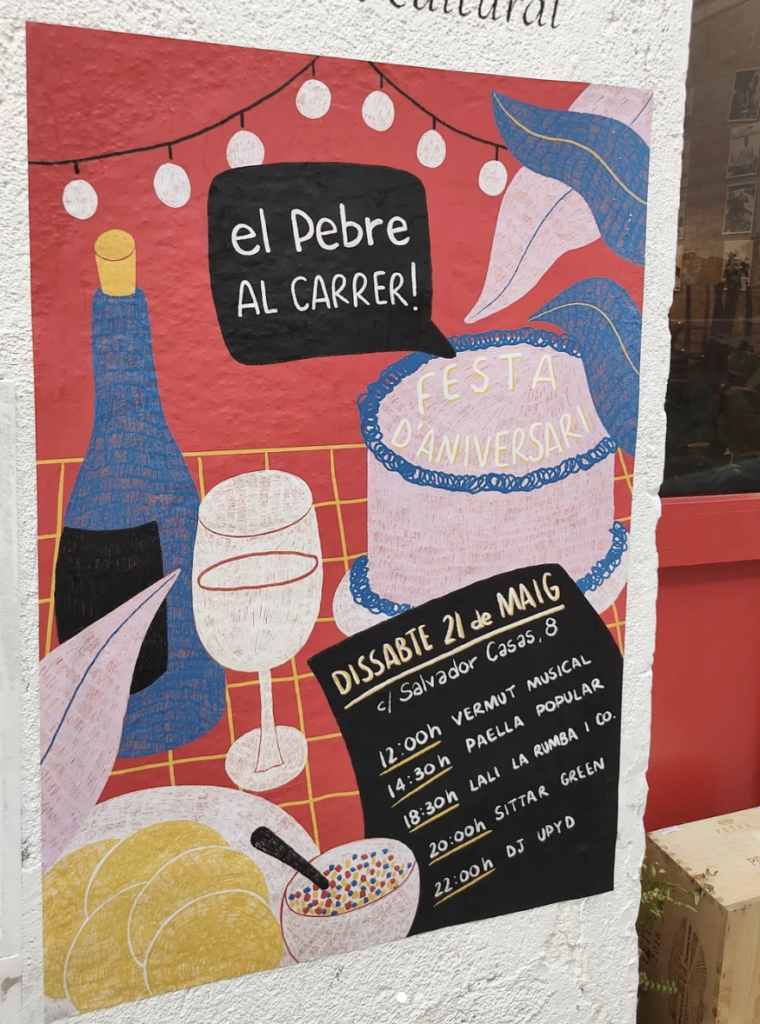 cultural
el Pebre
AL CARRER!
FESTA
D'ANIVERSARI
DISSABTE 21 de MAIG
c/ Salvador Casas, 8
12:00h VERMUT MUSICAL
14:30h PAELLA POPULAR
18:30h LALI LA RUMBA I CO.
20:00h SITTAR GREEN
22:00h DJ UPYD